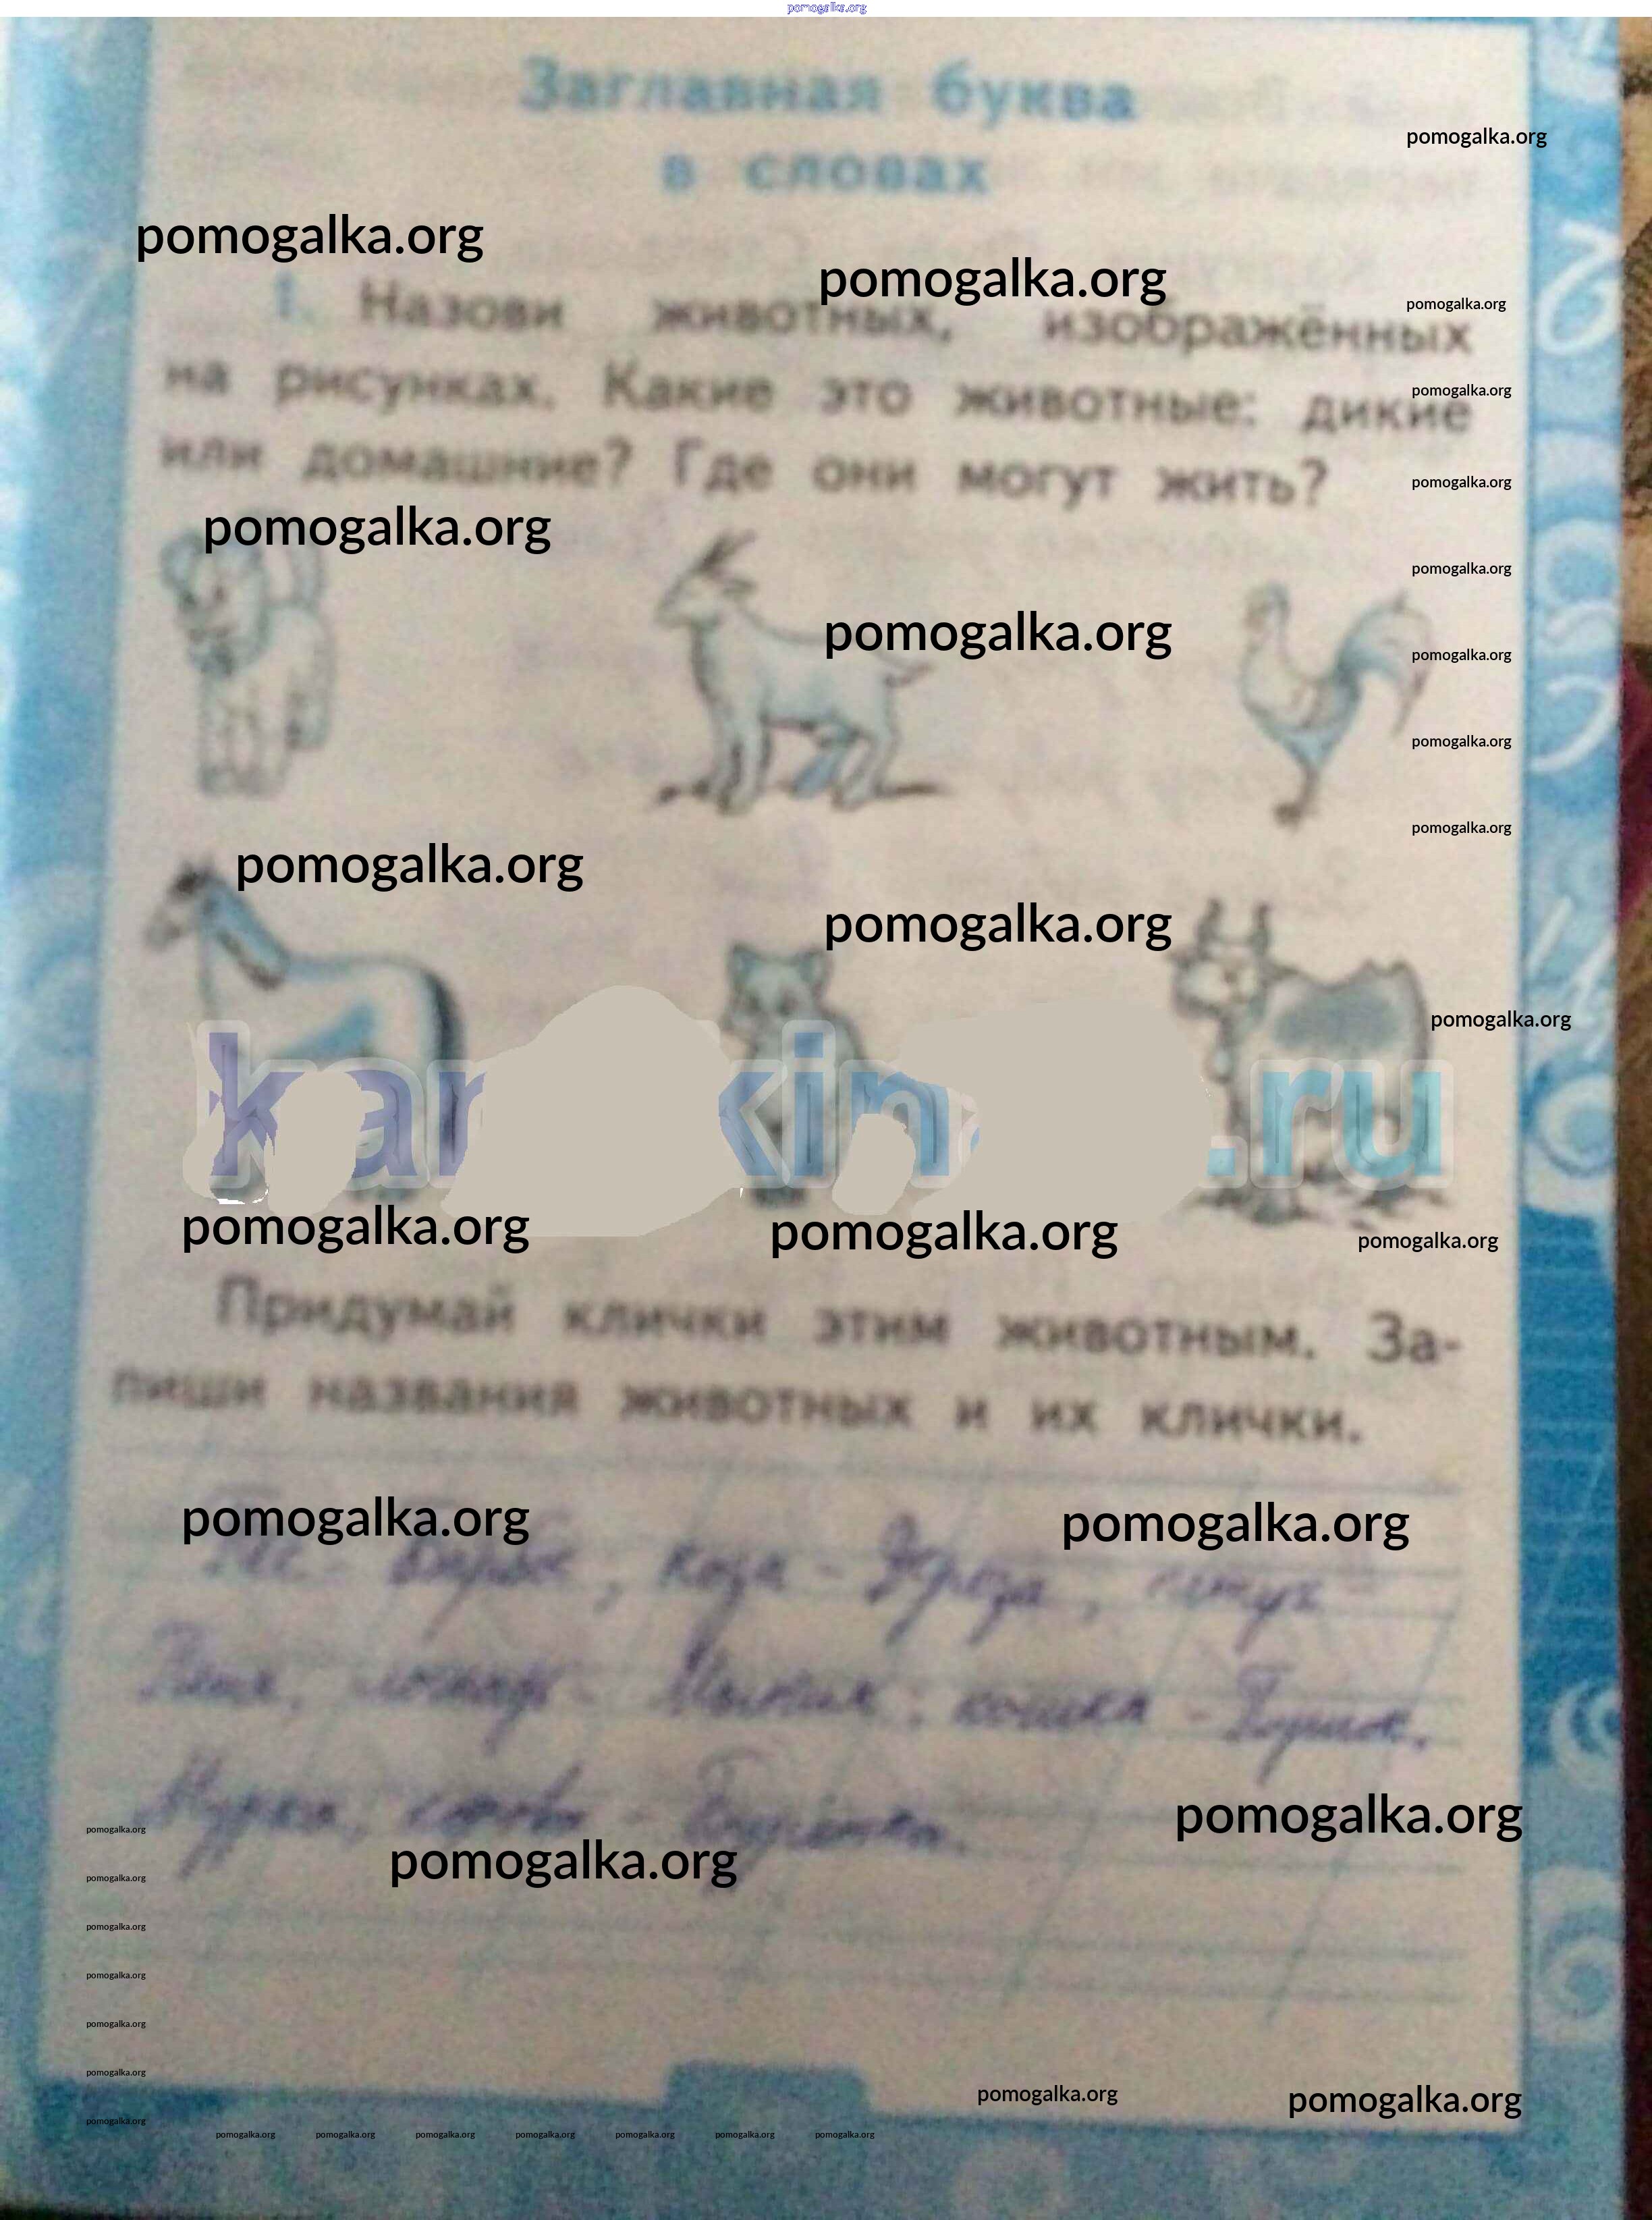 pomogalka.org
Заглавная буква
в словах
pomogalka.org
pomogalka.org
pomogalka.org
pomogalka.org
1. Назови животных, изображённых
на рисунках. Какие это животные: дикие
pomogalka.org
или домашние? Где они могут жить?
pomogalka.org
pomogalka.org
pomogalka.org
pomogalka.org
pomogalka.org
pomogalka.org
pomogalka.org
pomogalka.org
pomogalka.org
pomogalka.org
.ru
pomogalka.org
pomogalka.org
pomogalka.org
Придумай клички этим животным. За-
пиши названия животных и их клички.
pomogalka.org
pomogalka.org
коза - , петух -
кошка -
Мурка,
pomogalka.org
pomogalka.org
pomogalka.org
pomogalka.org
pomogalka.org
pomogalka.org
pomogalka.org
pomogalka.org
pomogalka.org
pomogalka.org
pomogalka.org
pomogalka.org pomogalka.org pomogalka.org pomogalka.org pomogalka.org pomogalka.org pomogalka.org